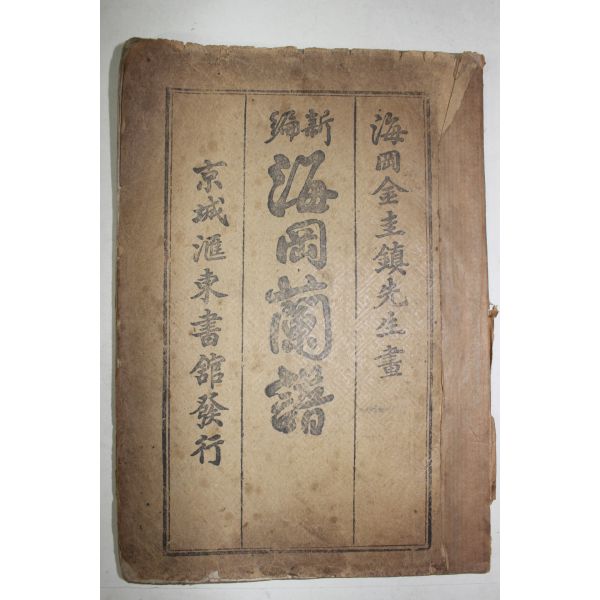 海岡金圭鎮先生畫
新編
海岡蘭譜
京城滙東書館發行